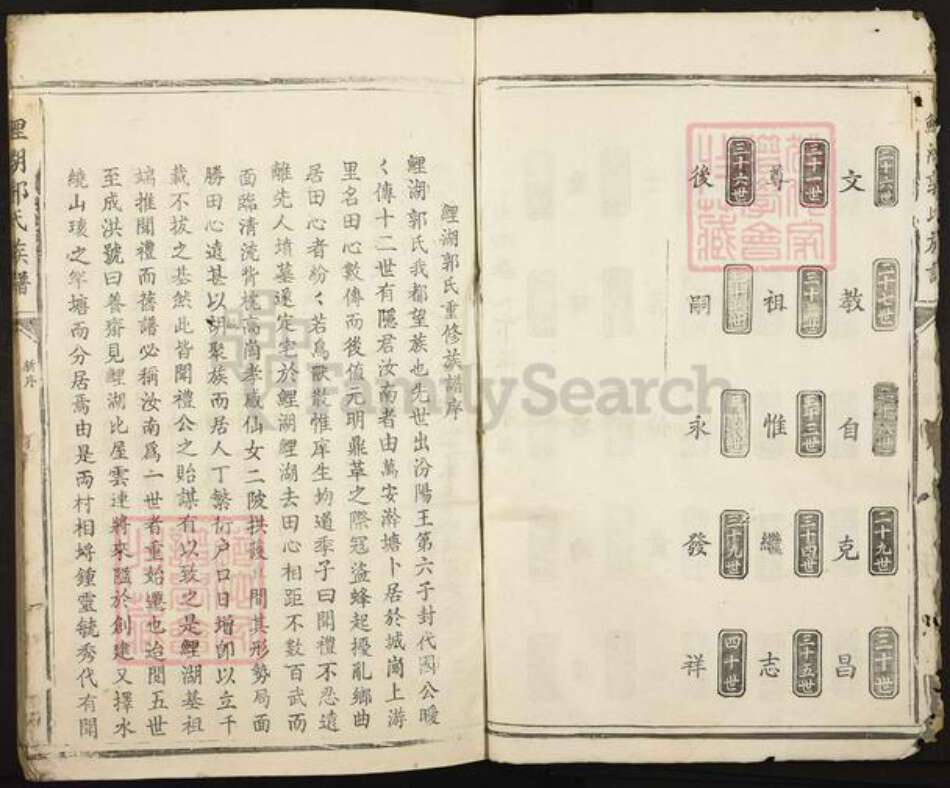 二十六世 文
二十七世 教
二十八世 自
二十九世 克
三十世 昌
三十一世 尊
三十二世 祖
三十三世 惟
三十四世 繼
三十五世 志
三十六世 後
嗣
永
三十九世 發
四十世 祥
鯉湖郭氏重修族譜序
鯉湖郭氏我都望族也先世出汾陽王第六子封代國公曖
〱傳十二世有隱君汝南者由萬安澣塘卜居於城崗上游
里名田心數傳而後值元明鼎革之際冦盜蜂起擾亂鄉曲
居田心者紛〱若鳥獸散惟庠生均遹季子曰聞禮不忍遠
離先人墳墓遂定宅於鯉湖鯉湖去田心相距不數百武而
面臨清流背枕高崗孝感仙女二陂拱護 間其形勢局面
勝田心遠甚以胡聚族而居人丁繁衍户口日增卽以立千
載不拔之基然此皆聞禮公之貽謀有以致之是鯉湖基祖
端推聞禮而舊譜必稱汝南爲一世者重始遷也迨閱五世
至成洪號曰養齋見鯉湖比屋雲連將來隘於創建又擇水
繞山環之 塘而分居焉由是兩村相埒鍾靈毓秀代有聞
鯉湖郭氏族譜
新序
FamilySearch